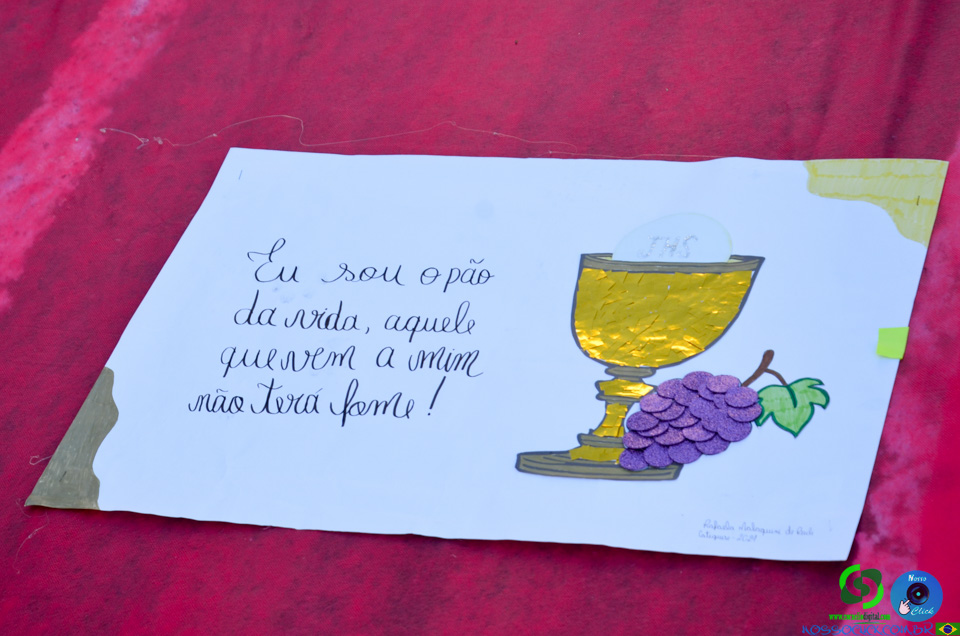 Eu sou o pão
da vida, aquele
que vem a mim
não terá fome!
IHS
Catequese - 2021
Nosso
Click